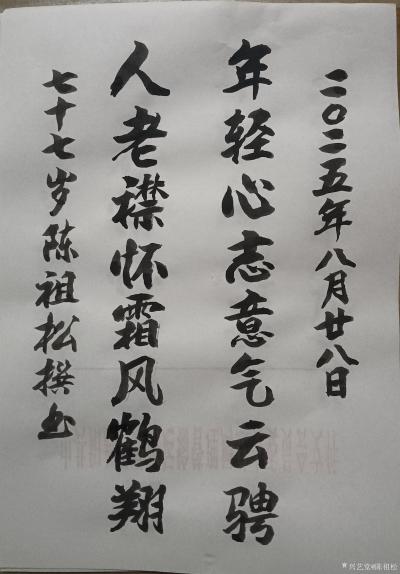 二〇二五年八月廿八日
年轻心志意气云骋
人老襟怀霜风鹤翔
七十七岁陈祖松撰书
兴艺堂陈祖松